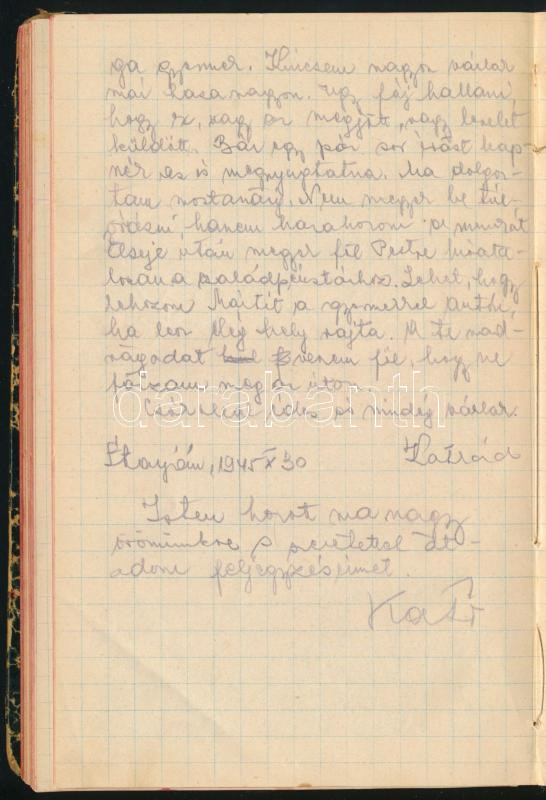 ga gyomor. Kincsem nagyon várlak
már haza nagyon. úgy fáj hallani,
hogy ez, vagy az megjött, vagy levelet
küldött. Bár egy pár sor írást kap-
nék az is megnyugtatna. Ma dolgoz-
tam mostanáig. Nem megyek be
hanem harahozni a
Elseje után megyek fel Pestre
a családpótlékhoz. Lehet, hogy
lehozom Mártit a gyerekkel
ha lesz elég hely rajta. A Te nad-
rágodat veszem fel, hogy ne
fázzam meg az úton.
Csókollak édes és mindég várlak.
1945 X 30 Katiád
Isten hozott ma nagy
örömünkre s szeretettel át-
adom feljegyzéseimet.
Kati
darabanth